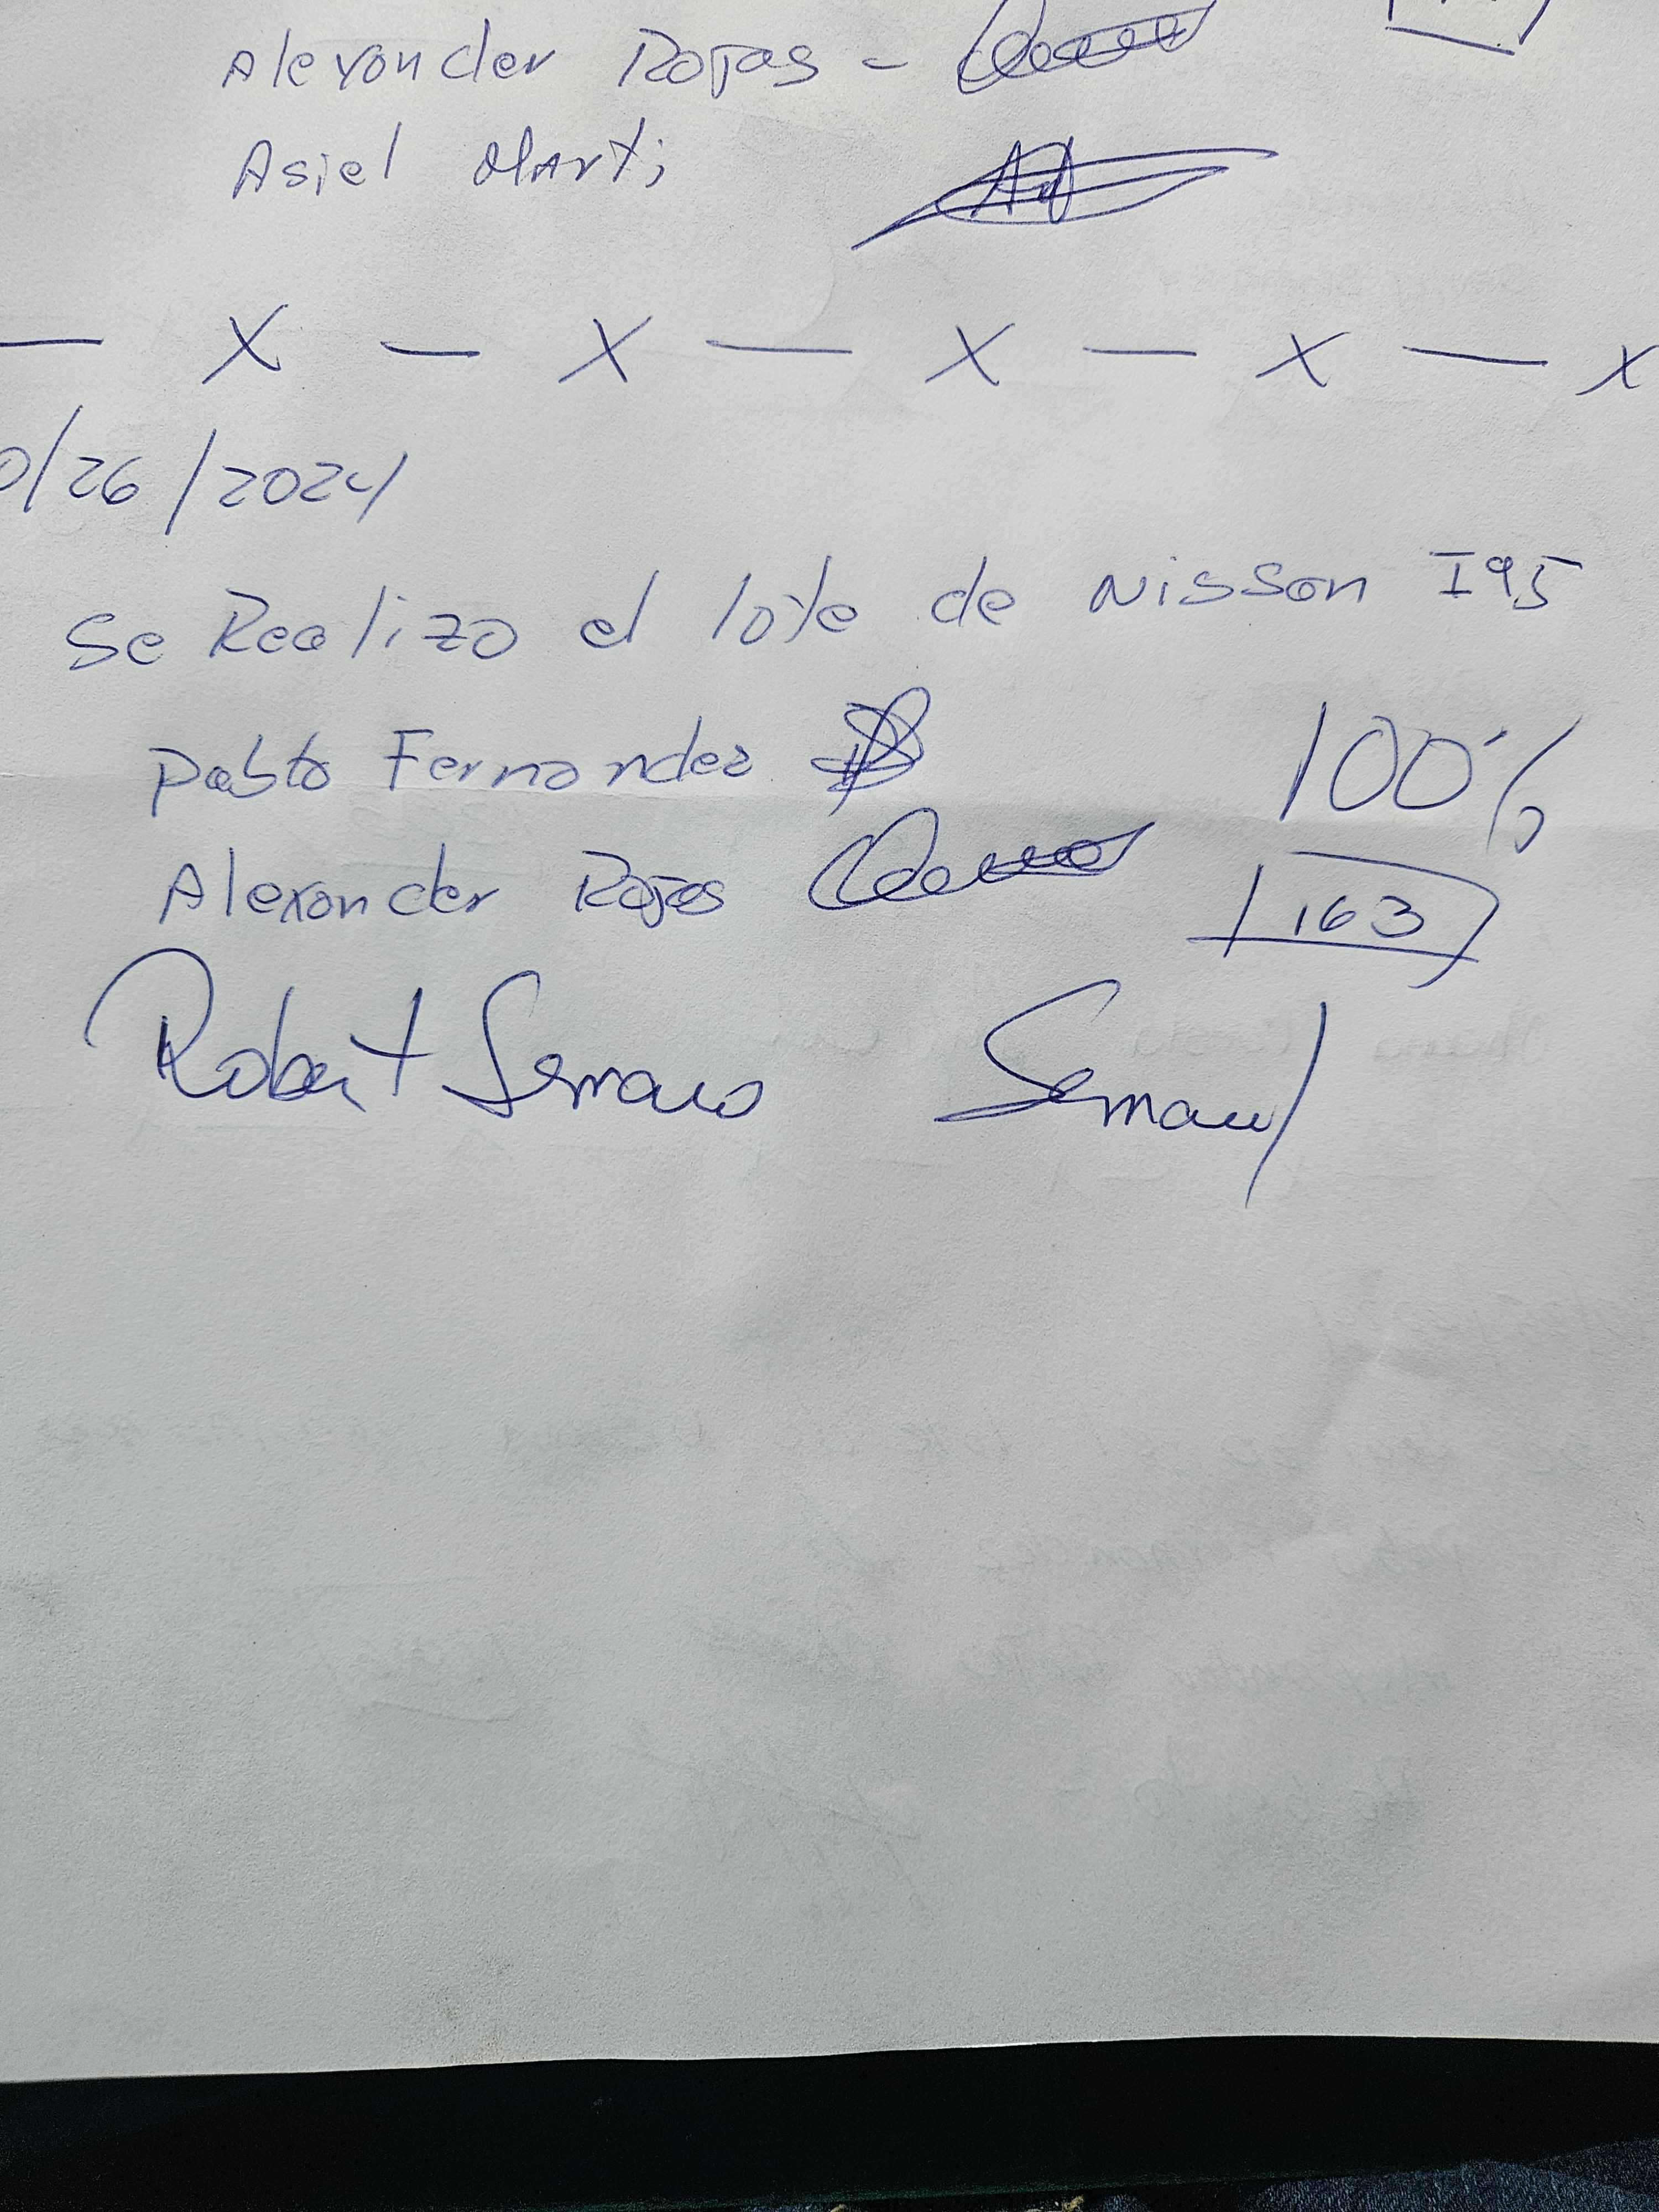 Alexander Rojas -
Asiel Marti
— X — X — X — X — X
0/26/2024
Se Realizo el lote de Nissan I95
Pablo Fernandez
100%
Alexander Rojas
163
Robert Serrano